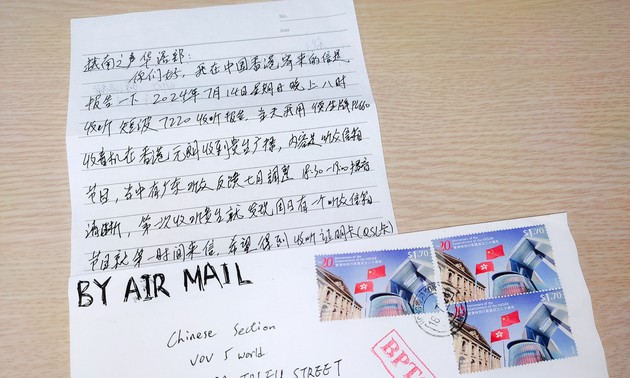 No.
Date
越南之声华语部：
你们好，我在中国香港寄来的信是
报告一下 2024年7月14日星期日晚上八时
收听短波 7220 收听报告。当天我用德生牌PL660
收音机在香港元朗收到贵台广播，内容是听众信箱
节目，当中有广东听众反馈七月调整 18:30-19:00 播音
清晰，第一次收听贵台就发现周日有一个听众信箱
节目就第一时间来信，希望得到收听证明卡(QSL卡)
BY AIR MAIL
Chinese Section
VOV 5 World
STREET
20
$1.70
20
$1.70
20
$1.70
BPT